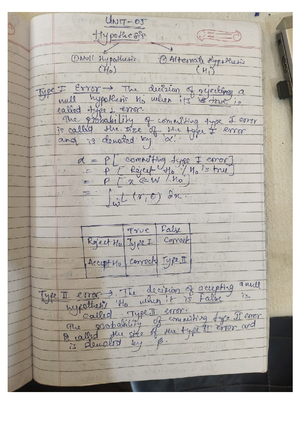 UNIT-05
Hypothesis
① Null Hypothesis
(H₀)
② Alternate Hypothesis
(H₁)
Type I Error → The decision of rejecting a
null hypothesis H₀ when it is true is
called type I error.
The probability of commiting type I error
is called the size of the type I error
and is denoted by α.
α = P [ commiting type I error]
= P [ Reject H₀ / H₀ is true]
= P [ x ∈ W / H₀ ]
True False
Reject H₀ Type I Correct
Accept H₀ correct Type II
Type II error → The decision of accepting a null
hypothesis H₀ when it is False is
called Type II error.
The probability of commiting type II error
is called the size of the type II error and
is denoted by β.